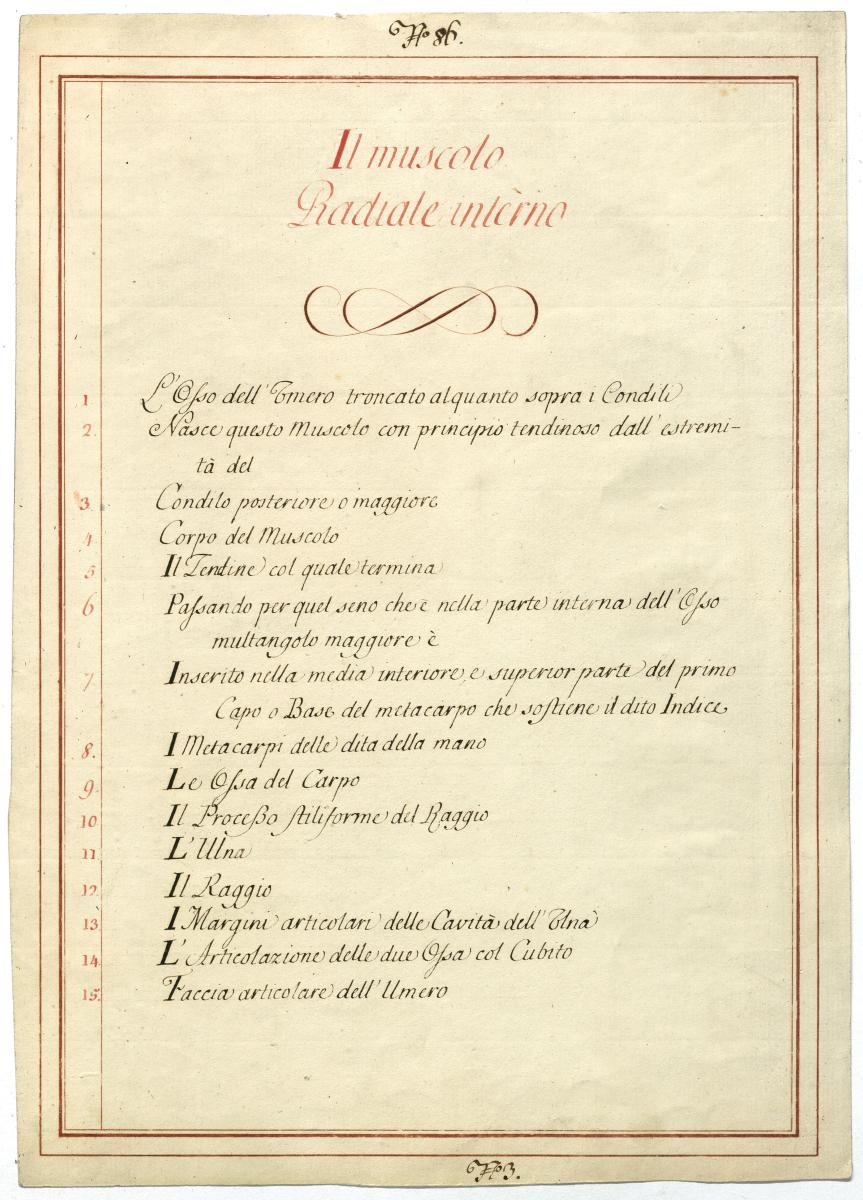 No 86.
Il muscolo
Radiale interno
1 L'Osso dell'Umero troncato alquanto sopra i Condili
2. Nasce questo Muscolo con principio tendinoso dall'estremi-
tà del
3. Condilo posteriore o maggiore
4 Corpo del Muscolo
5 Il Tendine col quale termina
6 Passando per quel seno che è nella parte interna dell'Osso
multangolo maggiore è
7 Inserito nella media interiore, e superior parte del primo
Capo o Base del metacarpo che sostiene il dito Indice
8. I Metacarpi delle dita della mano
9. Le Ossa del Carpo
10 Il Processo stiliforme del Raggio
11 L'Ulna
12. Il Raggio
13 I Margini articolari delle Cavità dell'Ulna
14 L'Articolazione delle due Ossa col Cubito
15. Faccia articolare dell'Umero
No 3.